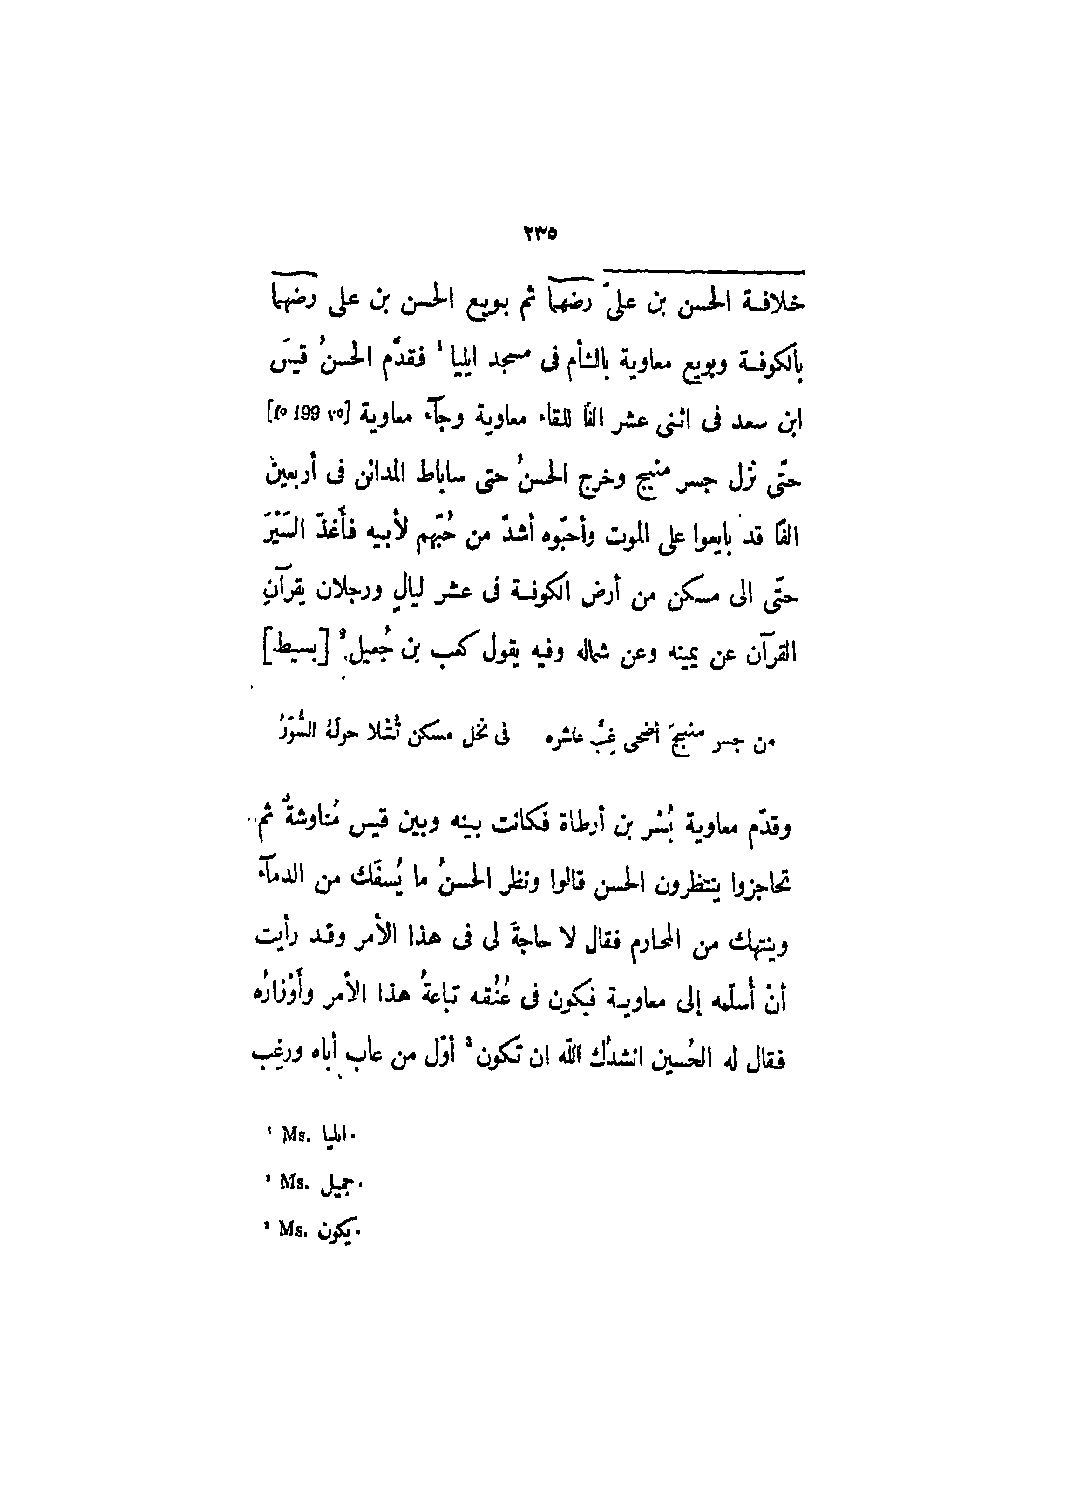 ٢٣٥
خلافة الحسن بن علىّ رضهما ثم بويع الحسن بن على رضهما
بالكوفة وبويع معاوية بالشأم فى مسجد ايليا ¹ فقدّم الحسنُ قيسَ
ابن سعد فى اثنى عشر الفًا للقاء معاوية وجآء معاوية [fº 199 vº]
حتّى نزل جسر منبج وخرج الحسنُ حتى ساباط المدائن فى أربعين
الفًا قد بايعوا على الموت وأحبّوه أشدّ من حُبّهم لأبيه فأَغذّ السَيْرَ
حتّى الى مسكن من أرض الكوفة فى عشر ليالٍ ورجلان يقرآنِ
القرآن عن يمينه وعن شماله وفيه يقول كعب بن جُعيل ² [بسيط]
من جسر منبجَ أضحى غِبَّ عاشره فى نخل مسكن تُتْلا حولَهُ السُّوَرُ
وقدّم معاوية بُسْر بن أرطاة فكانت بينه وبين قيس مُناوشةٌ ثم
تحاجزوا ينتظرون الحسن قالوا ونظر الحسنُ ما يُسفَك من الدمآء
وينتهك من المحارم فقال لا حاجةَ لى فى هذا الأمر وقد رأيت
أنْ أُسلّمه إلى معاوية فيكون فى عُنُقه تباعةُ هذا الأمر وأَوْزارُه
فقال له الحُسين انشدُك اللّه ان تكون ³ أوّل من عاب أباه ورغِب
¹ Ms. اىليا.
² Ms. جميل.
³ Ms. يكون.